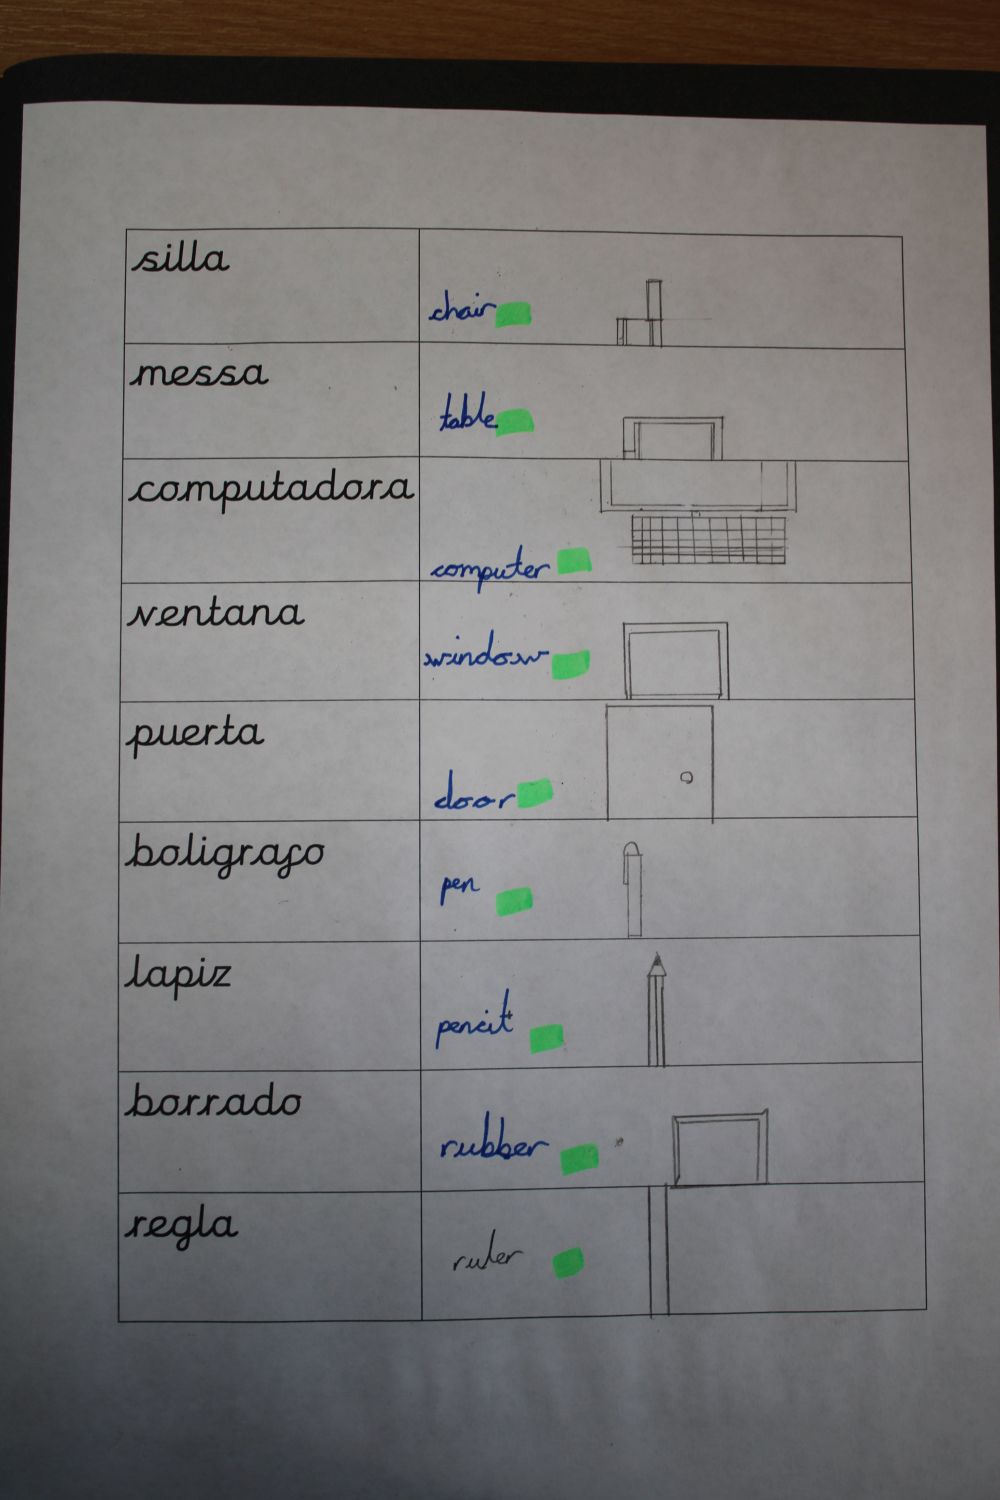 silla
chair
messa
table
computadora
computer
ventana
window
puerta
door
boligrafo
pen
lapiz
pencil
borrado
rubber
regla
ruler